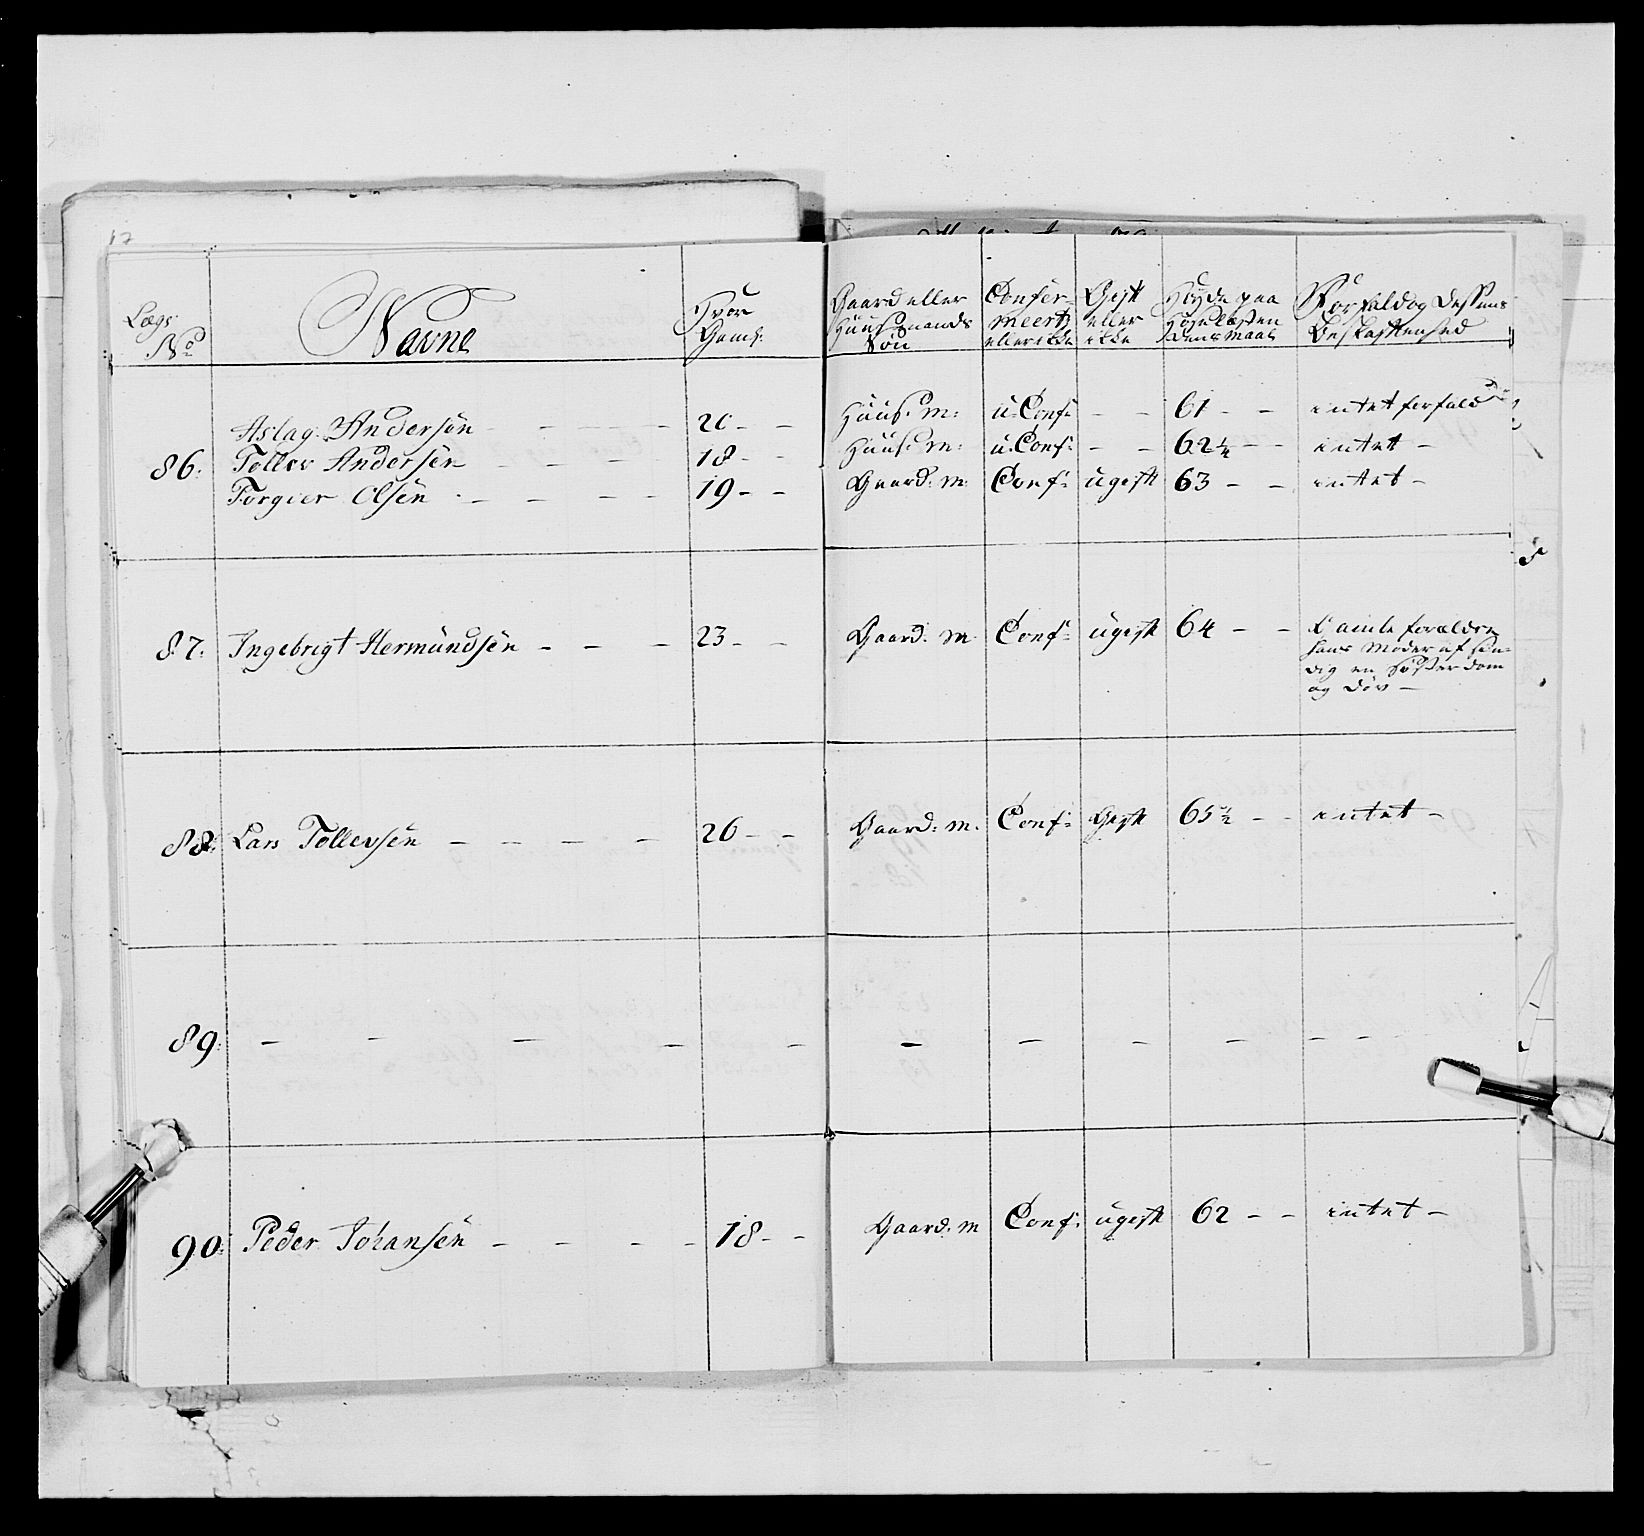 17
Lægs No Navne Hvor Gaml: Gaard eller Huusmands Søn Confermeert eller ikke Gift eller ikke Høyde paa
Forfald og Dessens Beskaffenhed
Aslag Andersen - - - - 20 - - Huusm: u-Conf: - - 61 - - intet forfald
86: Tollev Andersen - - - 18 - - Huusm: u-Conf: - - 62½ - - intet -
Torgier Olsen - - - - 19 - - Gaard: m: Conf: ugift 63 - - intet -
87: Ingebrigt Hermundsen - - - 23 - - Gaard: m: Conf: ugift 64 - - Gamle forældre
hans Moder
en Søster
og Døv -
88: Lars Tollevsen - - - - 26 - - Gaard: m: Conf: Gift 65½ - - intet -
89: - - - - - - - - - - - -
90: Peder Johansen - - - - 18 - - Gaard: m Conf: ugift 62 - - intet -